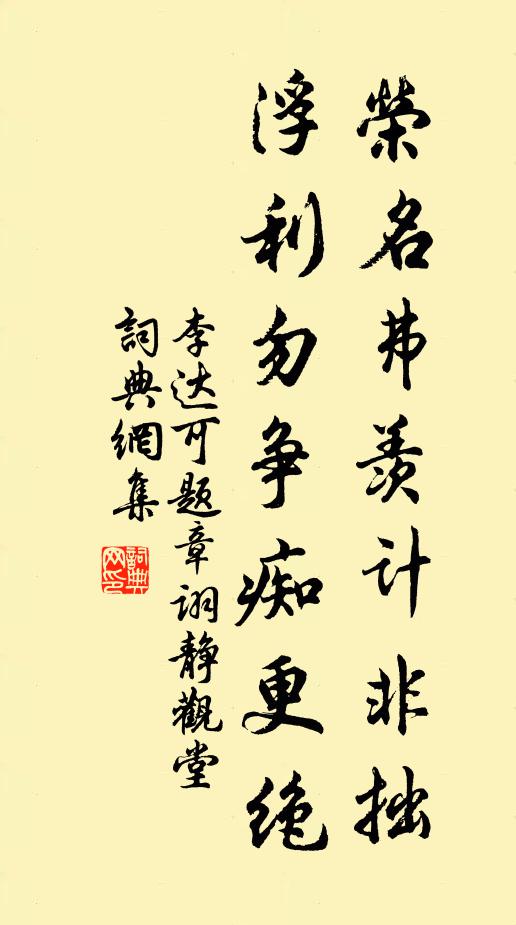 荣名弗羡计非拙
浮利勿争痴更绝
李达可题章诩静觀堂
詞典網集
詞典网印